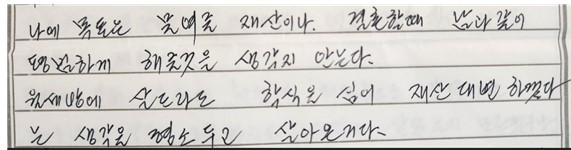 나에 목표은 물여줄 재산이나. 결혼할때 남과 같이
평범하게 해줄것을 생각지 안는다.
월세방에 살드라도 학식을 심어 재산 대변 하겠다
는 생각을 평소 두고 살아온거다.